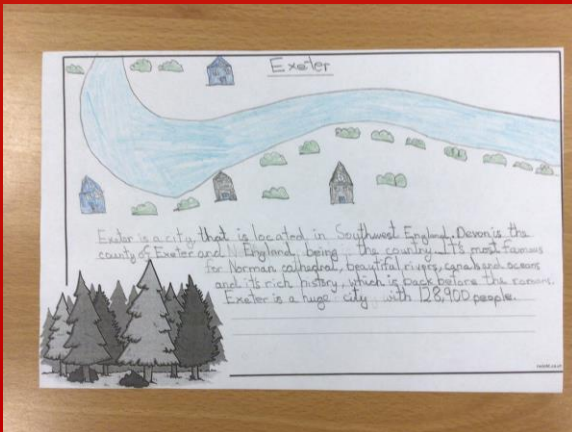 Exeter
Exeter is a city that is located in Southwest England. Devon is the
county of Exeter and England, being the country. It's most famous
for Norman cathedral, beautiful rivers, canals and oceans
and it's rich history, which is back before the romans.
Exeter is a huge city with 128,900 people.